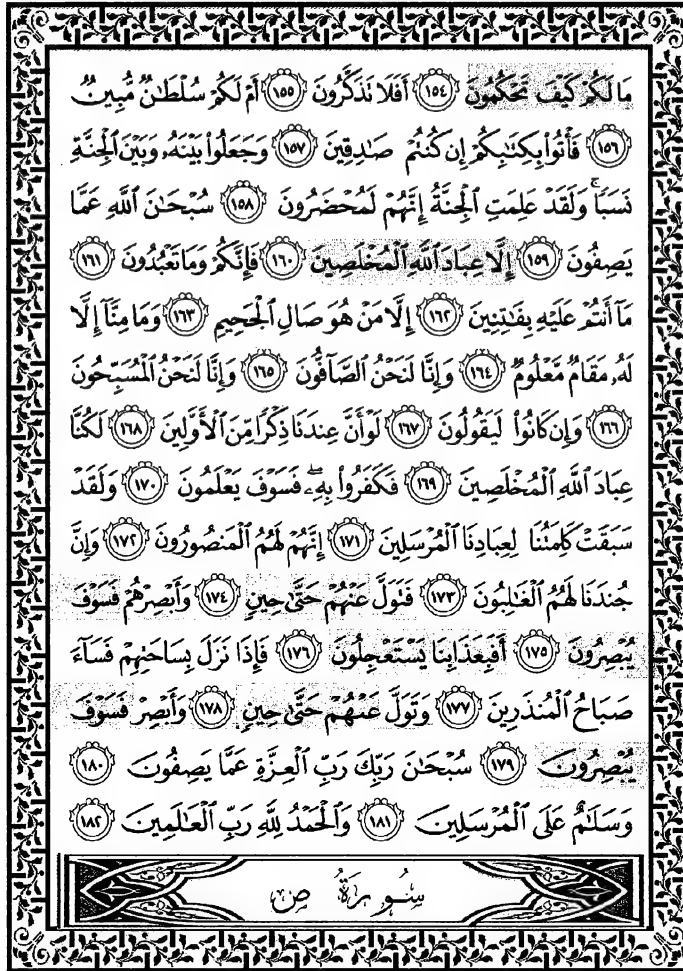 مَا لَكُمْ كَيْفَ تَحْكُمُونَ ﴿١٥٤﴾ أَفَلَا تَذَكَّرُونَ ﴿١٥٥﴾ أَمْ لَكُمْ سُلْطَـٰنٌ مُّبِينٌ
﴿١٥٦﴾ فَأْتُوا۟ بِكِتَـٰبِكُمْ إِن كُنتُمْ صَـٰدِقِينَ ﴿١٥٧﴾ وَجَعَلُوا۟ بَيْنَهُۥ وَبَيْنَ ٱلْجِنَّةِ
نَسَبًا ۚ وَلَقَدْ عَلِمَتِ ٱلْجِنَّةُ إِنَّهُمْ لَمُحْضَرُونَ ﴿١٥٨﴾ سُبْحَـٰنَ ٱللَّهِ عَمَّا
يَصِفُونَ ﴿١٥٩﴾ إِلَّا عِبَادَ ٱللَّهِ ٱلْمُخْلَصِينَ ﴿١٦٠﴾ فَإِنَّكُمْ وَمَا تَعْبُدُونَ ﴿١٦١﴾
مَآ أَنتُمْ عَلَيْهِ بِفَـٰتِنِينَ ﴿١٦٢﴾ إِلَّا مَنْ هُوَ صَالِ ٱلْجَحِيمِ ﴿١٦٣﴾ وَمَا مِنَّآ إِلَّا
لَهُۥ مَقَامٌ مَّعْلُومٌ ﴿١٦٤﴾ وَإِنَّا لَنَحْنُ ٱلصَّآفُّونَ ﴿١٦٥﴾ وَإِنَّا لَنَحْنُ ٱلْمُسَبِّحُونَ
﴿١٦٦﴾ وَإِن كَانُوا۟ لَيَقُولُونَ ﴿١٦٧﴾ لَوْ أَنَّ عِندَنَا ذِكْرًا مِّنَ ٱلْأَوَّلِينَ ﴿١٦٨﴾ لَكُنَّا
عِبَادَ ٱللَّهِ ٱلْمُخْلَصِينَ ﴿١٦٩﴾ فَكَفَرُوا۟ بِهِۦ ۖ فَسَوْفَ يَعْلَمُونَ ﴿١٧٠﴾ وَلَقَدْ
سَبَقَتْ كَلِمَتُنَا لِعِبَادِنَا ٱلْمُرْسَلِينَ ﴿١٧١﴾ إِنَّهُمْ لَهُمُ ٱلْمَنصُورُونَ ﴿١٧٢﴾ وَإِنَّ
جُندَنَا لَهُمُ ٱلْغَـٰلِبُونَ ﴿١٧٣﴾ فَتَوَلَّ عَنْهُمْ حَتَّىٰ حِينٍ ﴿١٧٤﴾ وَأَبْصِرْهُمْ فَسَوْفَ
يُبْصِرُونَ ﴿١٧٥﴾ أَفَبِعَذَابِنَا يَسْتَعْجِلُونَ ﴿١٧٦﴾ فَإِذَا نَزَلَ بِسَاحَتِهِمْ فَسَآءَ
صَبَاحُ ٱلْمُنذَرِينَ ﴿١٧٧﴾ وَتَوَلَّ عَنْهُمْ حَتَّىٰ حِينٍ ﴿١٧٨﴾ وَأَبْصِرْ فَسَوْفَ
يُبْصِرُونَ ﴿١٧٩﴾ سُبْحَـٰنَ رَبِّكَ رَبِّ ٱلْعِزَّةِ عَمَّا يَصِفُونَ ﴿١٨٠﴾
وَسَلَـٰمٌ عَلَى ٱلْمُرْسَلِينَ ﴿١٨١﴾ وَٱلْحَمْدُ لِلَّهِ رَبِّ ٱلْعَـٰلَمِينَ ﴿١٨٢﴾
سُورَةُ صٓ